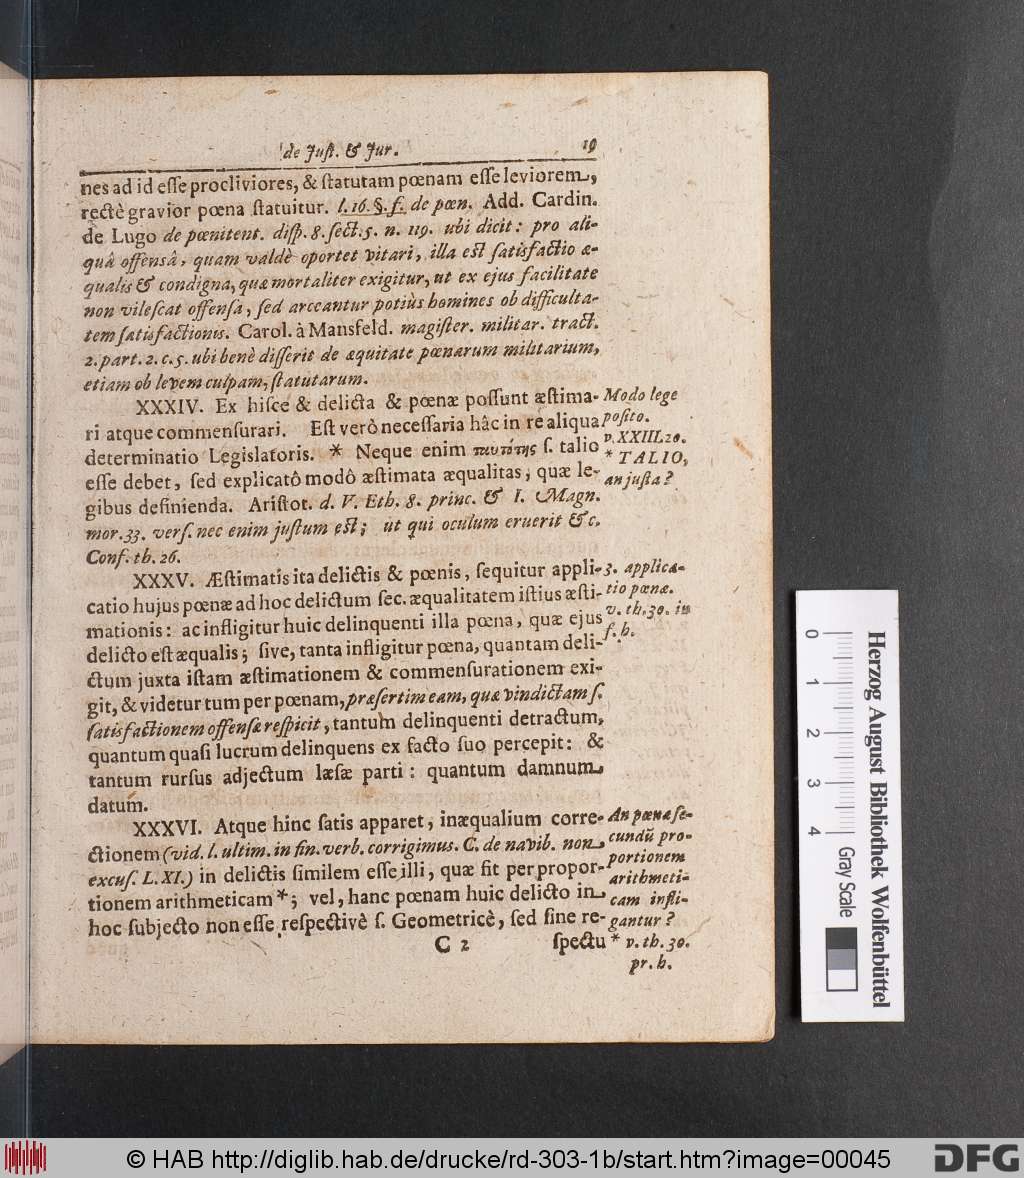 de Juſt. & Jur. 19
nes ad id eſſe procliviores, & ſtatutam pœnam eſſe leviorem,
rectè gravior pœna ſtatuitur. l. 16. §. f. de pœn. Add. Cardin.
de Lugo de pœnitent. diſp. 8. ſect. 5. n. 119. ubi dicit: pro ali-
quâ offensâ, quam valdè oportet vitari, illa eſt ſatisfactio æ-
qualis & condigna, quæ mortaliter exigitur, ut ex ejus facilitate
non vileſcat offenſa, ſed arceantur potiùs homines ob difficulta-
tem ſatisfactionis. Carol. à Mansfeld. magiſter. militar. tract.
2. part. 2. c. 5. ubi benè diſſerit de æquitate pœnarum militarium,
etiam ob levem culpam, ſtatutarum.
XXXIV. Ex hiſce & delicta & pœnæ poſſunt æſtima-
ri atque commenſurari. Eſt verò neceſſaria hâc in re aliqua
determinatio Legislatoris. * Neque enim ταυτότης ſ. talio
eſſe debet, ſed explicatô modô æſtimata æqualitas, quæ le-
gibus definienda. Ariſtot. d. V. Eth. 8. princ. & I. Magn.
mor. 33. verſ. nec enim juſtum eſt; ut qui oculum eruerit &c.
Conf. th. 26.
Modo lege
poſito.
v. XXIII. 20.
* TALIO,
an juſta?
XXXV. Æſtimatis ita delictis & pœnis, ſequitur appli-
catio hujus pœnæ ad hoc delictum ſec. æqualitatem iſtius æſti-
mationis: ac infligitur huic delinquenti illa pœna, quæ ejus
delicto eſt æqualis; ſive, tanta infligitur pœna, quantam deli-
ctum juxta iſtam æſtimationem & commenſurationem exi-
git, & videtur tum per pœnam, præſertim eam, quæ vindictam ſ.
ſatisfactionem offenſæ reſpicit, tantum delinquenti detractum,
quantum quaſi lucrum delinquens ex facto ſuo percepit: &
tantum rurſus adjectum læſæ parti: quantum damnum
datum.
3. applica-
tio pœnæ.
v. th. 30. in
f. h.
XXXVI. Atque hinc ſatis apparet, inæqualium corre-
ctionem (vid. l. ultim. in fin. verb. corrigimus. C. de navib. non
excuſ. L. XI.) in delictis ſimilem eſſe illi, quæ fit per propor-
tionem arithmeticam *; vel, hanc pœnam huic delicto in
hoc ſubjecto non eſſe reſpectivè ſ. Geometricè, ſed ſine re-
C 2 ſpectu
An pœnæ ſe-
cundũ pro-
portionem
arithmeti-
cam infli-
gantur?
* v. th. 30.
pr. h.
0 1 2 3 4 Gray Scale
Herzog August Bibliothek Wolfenbüttel
© HAB http://diglib.hab.de/drucke/rd-303-1b/start.htm?image=00045
DFG